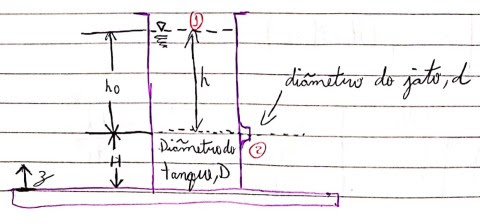 ①
h₀
h
diâmetro do jato, d
②
Diâmetro do
tanque, D
H
z